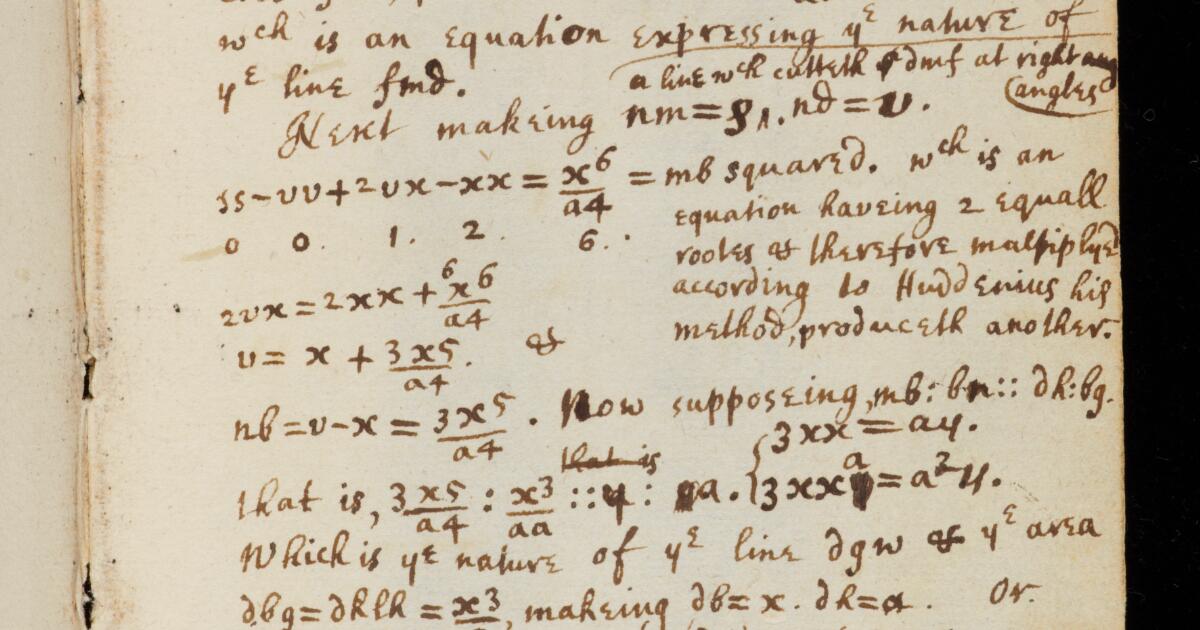 wch is an Equation Expressing yE nature of
yE line fmd.
a line wch cutteth dmf at right
(angles
Next makeing nm=s, nd=v.
ss-vv+2vx-xx = x6/a4 = mb squared. wch is an
0 0. 1. 2. 6.
equation haveing 2 equall
rootes & therefore multiplyed
according to Huddenius his
method, produceth another.
2vx=2xx+6x6/a4
v= x + 3x5/a4. &
nb=v-x = 3x5/a4. Now supposeing, mb:bn::dh:bg.
that is
that is, 3x5/a4 : x3/aa :: y : a. {3xx=ay.
3xxa=a3y.
Which is yE nature of yE line dgw & yE area
dbg=dklh = x3, makeing db=x. dk=a. Or.